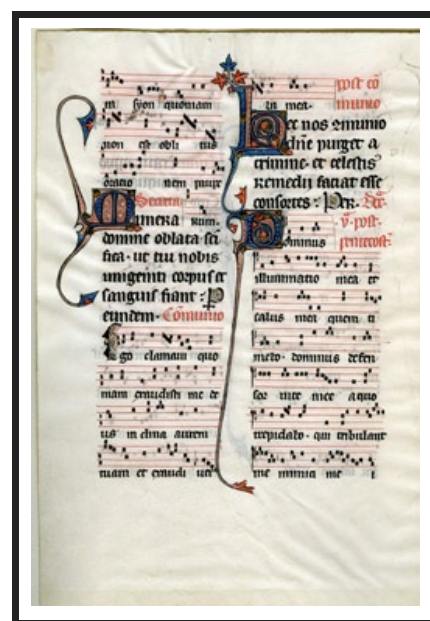 in syon quoniam
non est obli tus
oratio nem paupe
Secreta
Munera num.
domine oblata sci
fica · ut tu nobis
unigeniti corpus et
sanguis fiant : P
eundem · Comunio
Ego clamaui quo
niam exaudisti me de
us in clina aurem
tuam et exaudi uer
ba mea · post cō
munio
Hec nos ɔmunio
dn̄e purget a
crimine · et celestis
remedii faciat esse
consortes : Per.
v · post ·
Dominus penthecost̄
illuminatio mea et
salus mea quem ti
mebo · dominus defen
sor uite mee a quo
trepidabo · qui tribulant
me inimici me i